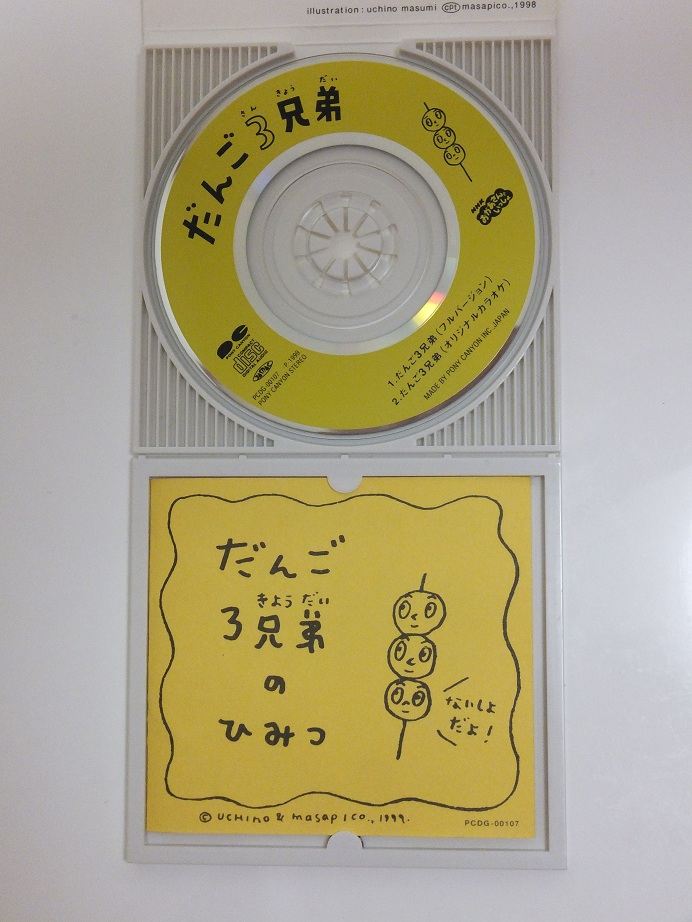 illustration : uchino masumi cpt masapico.,1998
さん きょう だい
だんご3兄弟
NHK
おかあさんと
いっしょ
PONY CANYON
COMPACT
disc
DIGITAL AUDIO
PCDG-00107
PONY CANYON STEREO
1.だんご3兄弟(フルバージョン)
2.だんご3兄弟(オリジナルカラオケ)
MADE BY PONY CANYON INC.,JAPAN
だんご
きょう だい
3兄弟
の
ひみつ
ないしょ
だよ!
© UCHINO & masapico., 1999.
PCDG-00107